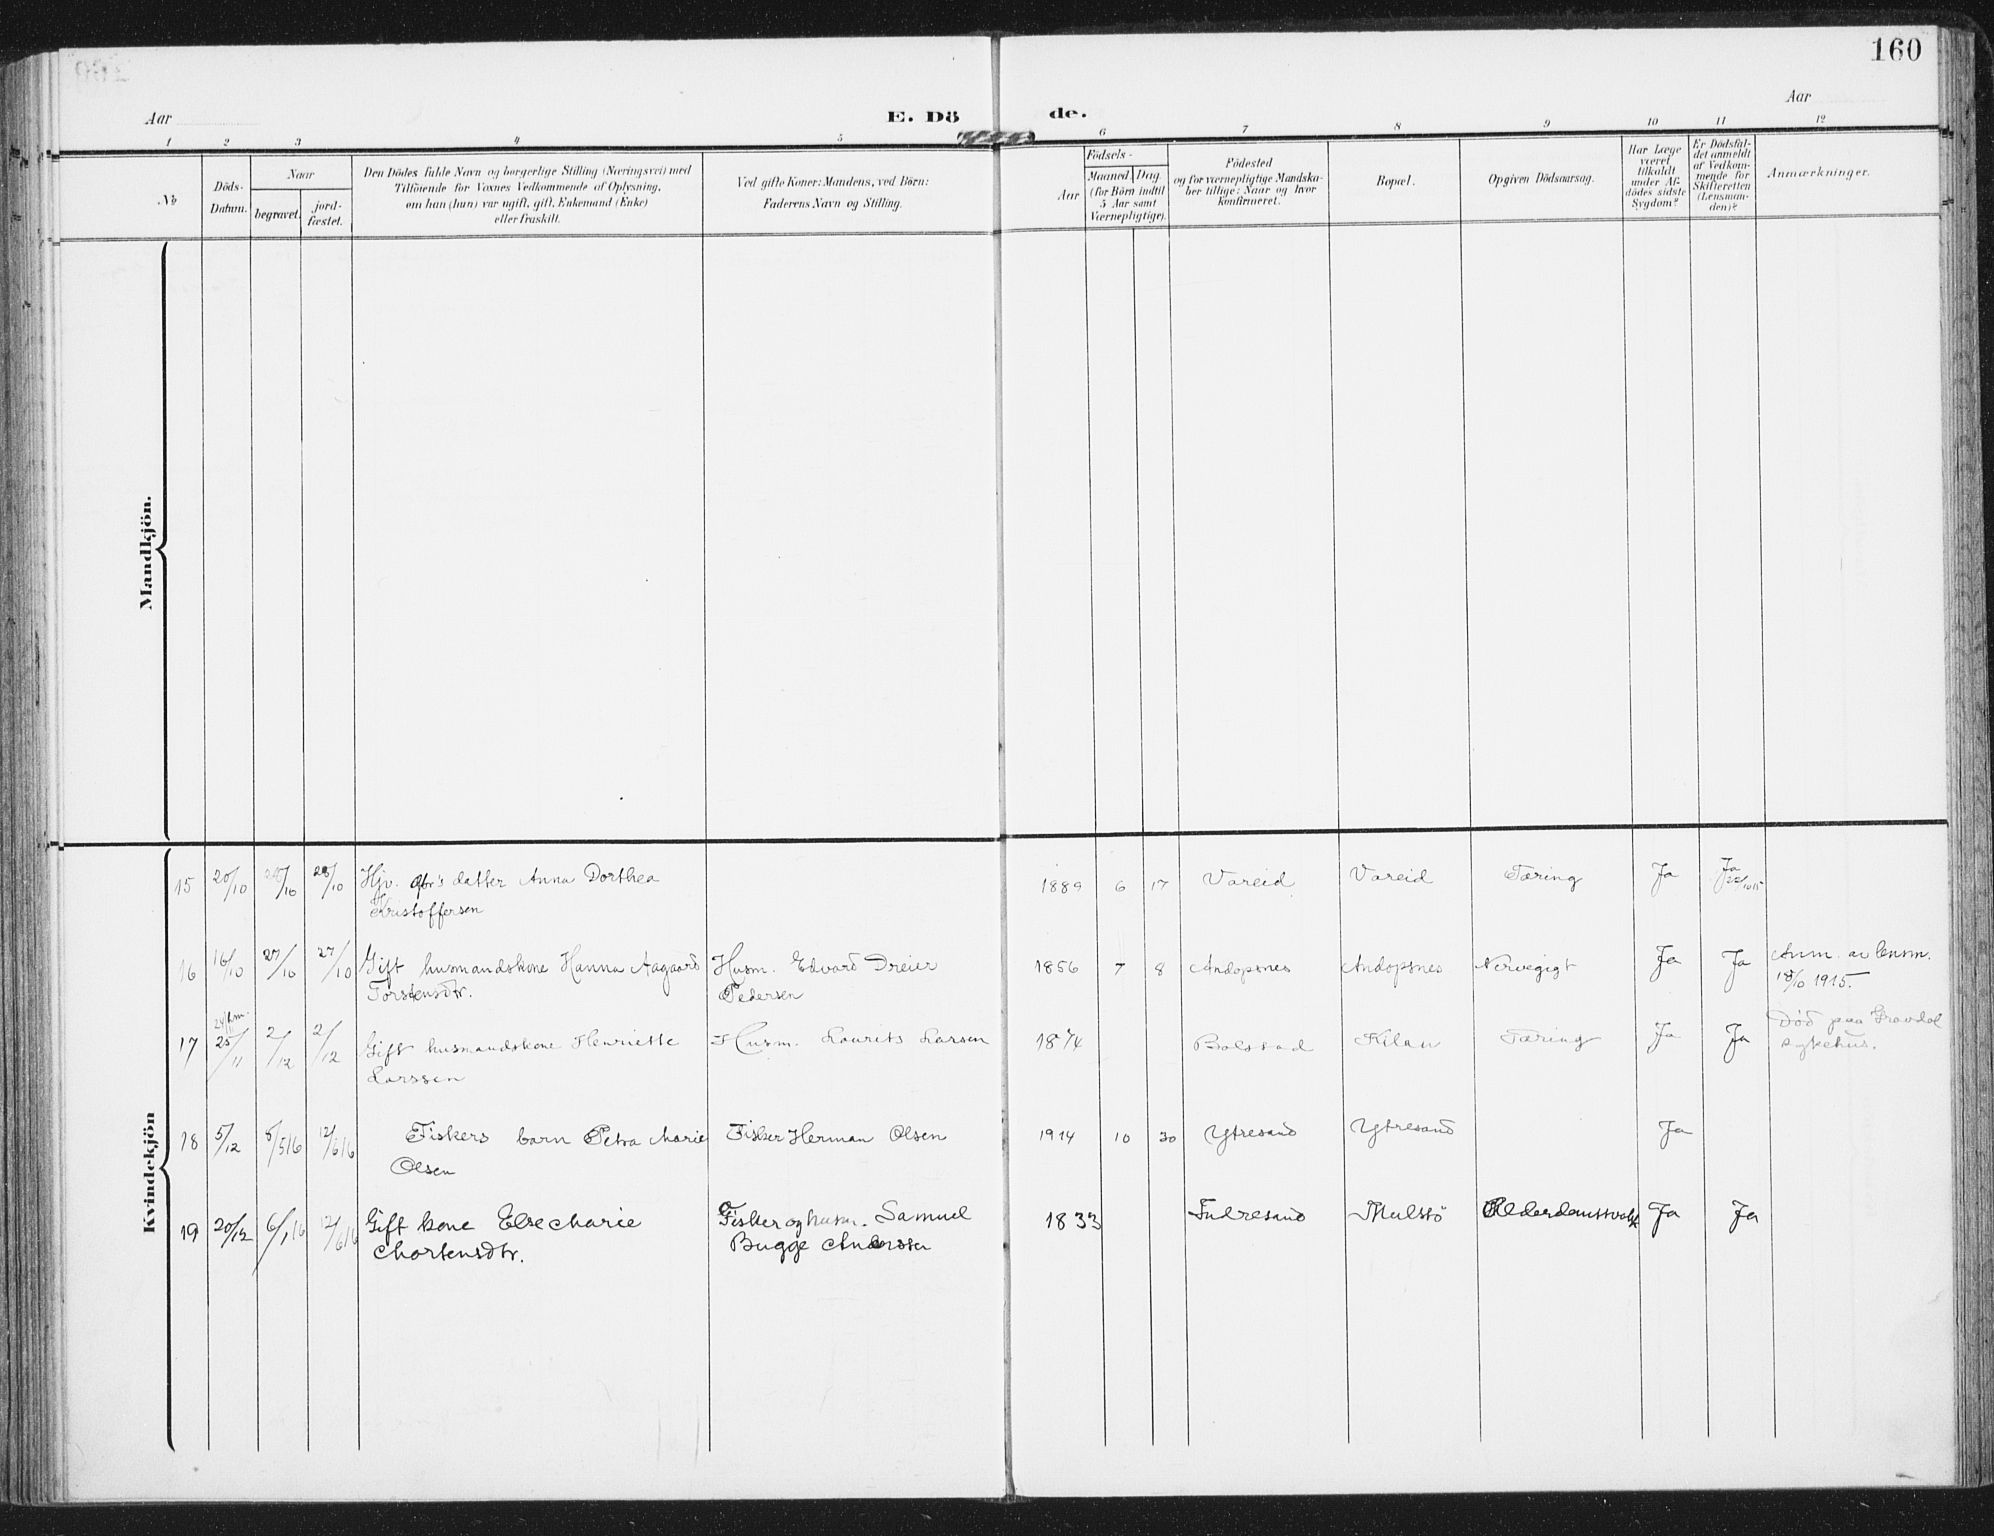 160
Aar
E. Dö de.
Aar
1 2 3 4 5 6 7 8 9 10 11 12
No
Döds-
Datum.
Naar
begravet.
jord-
fæstet.
Den Dödes fulde Navn og borgerlige Stilling (Næringsvei) med
Tilföiende for Voxnes Vedkommende af Oplysning,
om han (hun) var ugift, gift, Enkemand (Enke)
eller fraskilt.
Ved gifte Koner: Mandens, ved Börn:
Faderens Navn og Stilling.
Födsels-
Aar
Maaned. Dag.
(for Börn indtil
5 Aar samt
Værnepligtige).
Födested
og for værnepligtige Mandska-
ber tillige: Naar og hvor
konfirmeret.
Bopæl.
Opgiven Dödsaarsag.
Har Læge
været
tilkaldt
under Af-
dödes sidste
Sygdom?
Er Dödsfal-
det anmeldt
af Vedkom-
mende for
Skifteretten
(Lensman-
den)?
Anmærkninger.
Mandkjön.
Kvindekjön
15 20/10 28/10 Hjv. datter Anna Dorthea 1889 6 17 Vareid Vareid Tæring Ja Ja
Kristoffersen
16 16/10 27/10 27/10 Gift husmandskone Hanna Aagaard Husm. Edvard Dreier 1856 7 8 Andopsnes Andopsnes Ja Ja Anm. av lensm.
Torstensdtr. Pedersen 18/10 1915.
17 25/11 2/12 2/12 Gift husmandskone Henriette Husm. Laurits Larsen 1874 Bolstad Kilan Tæring Ja Ja Död paa Gravdal
Larssen sykehus.
18 5/12 8/5 16 12/6 16 Fiskers barn Petra Marie Fisker Herman Olsen 1914 10 30 Ytresand Ytresand Ja
Olsen
19 20/12 6/1 16 12/6 16 Gift kone Else Marie Fisker og husm. Samuel 1833 Indresand Mulstö Ja Ja
Mortensdtr. Bugge Anderssen